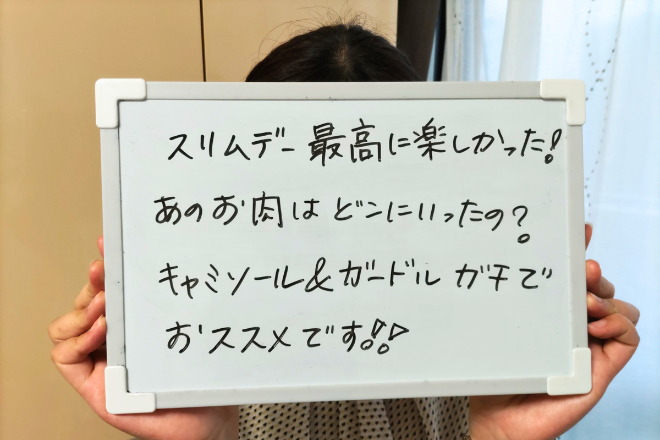 スリムデー最高に楽しかった!
あのお肉はどこにいったの?
キャミソール&ガードルガチで
おススメです!!